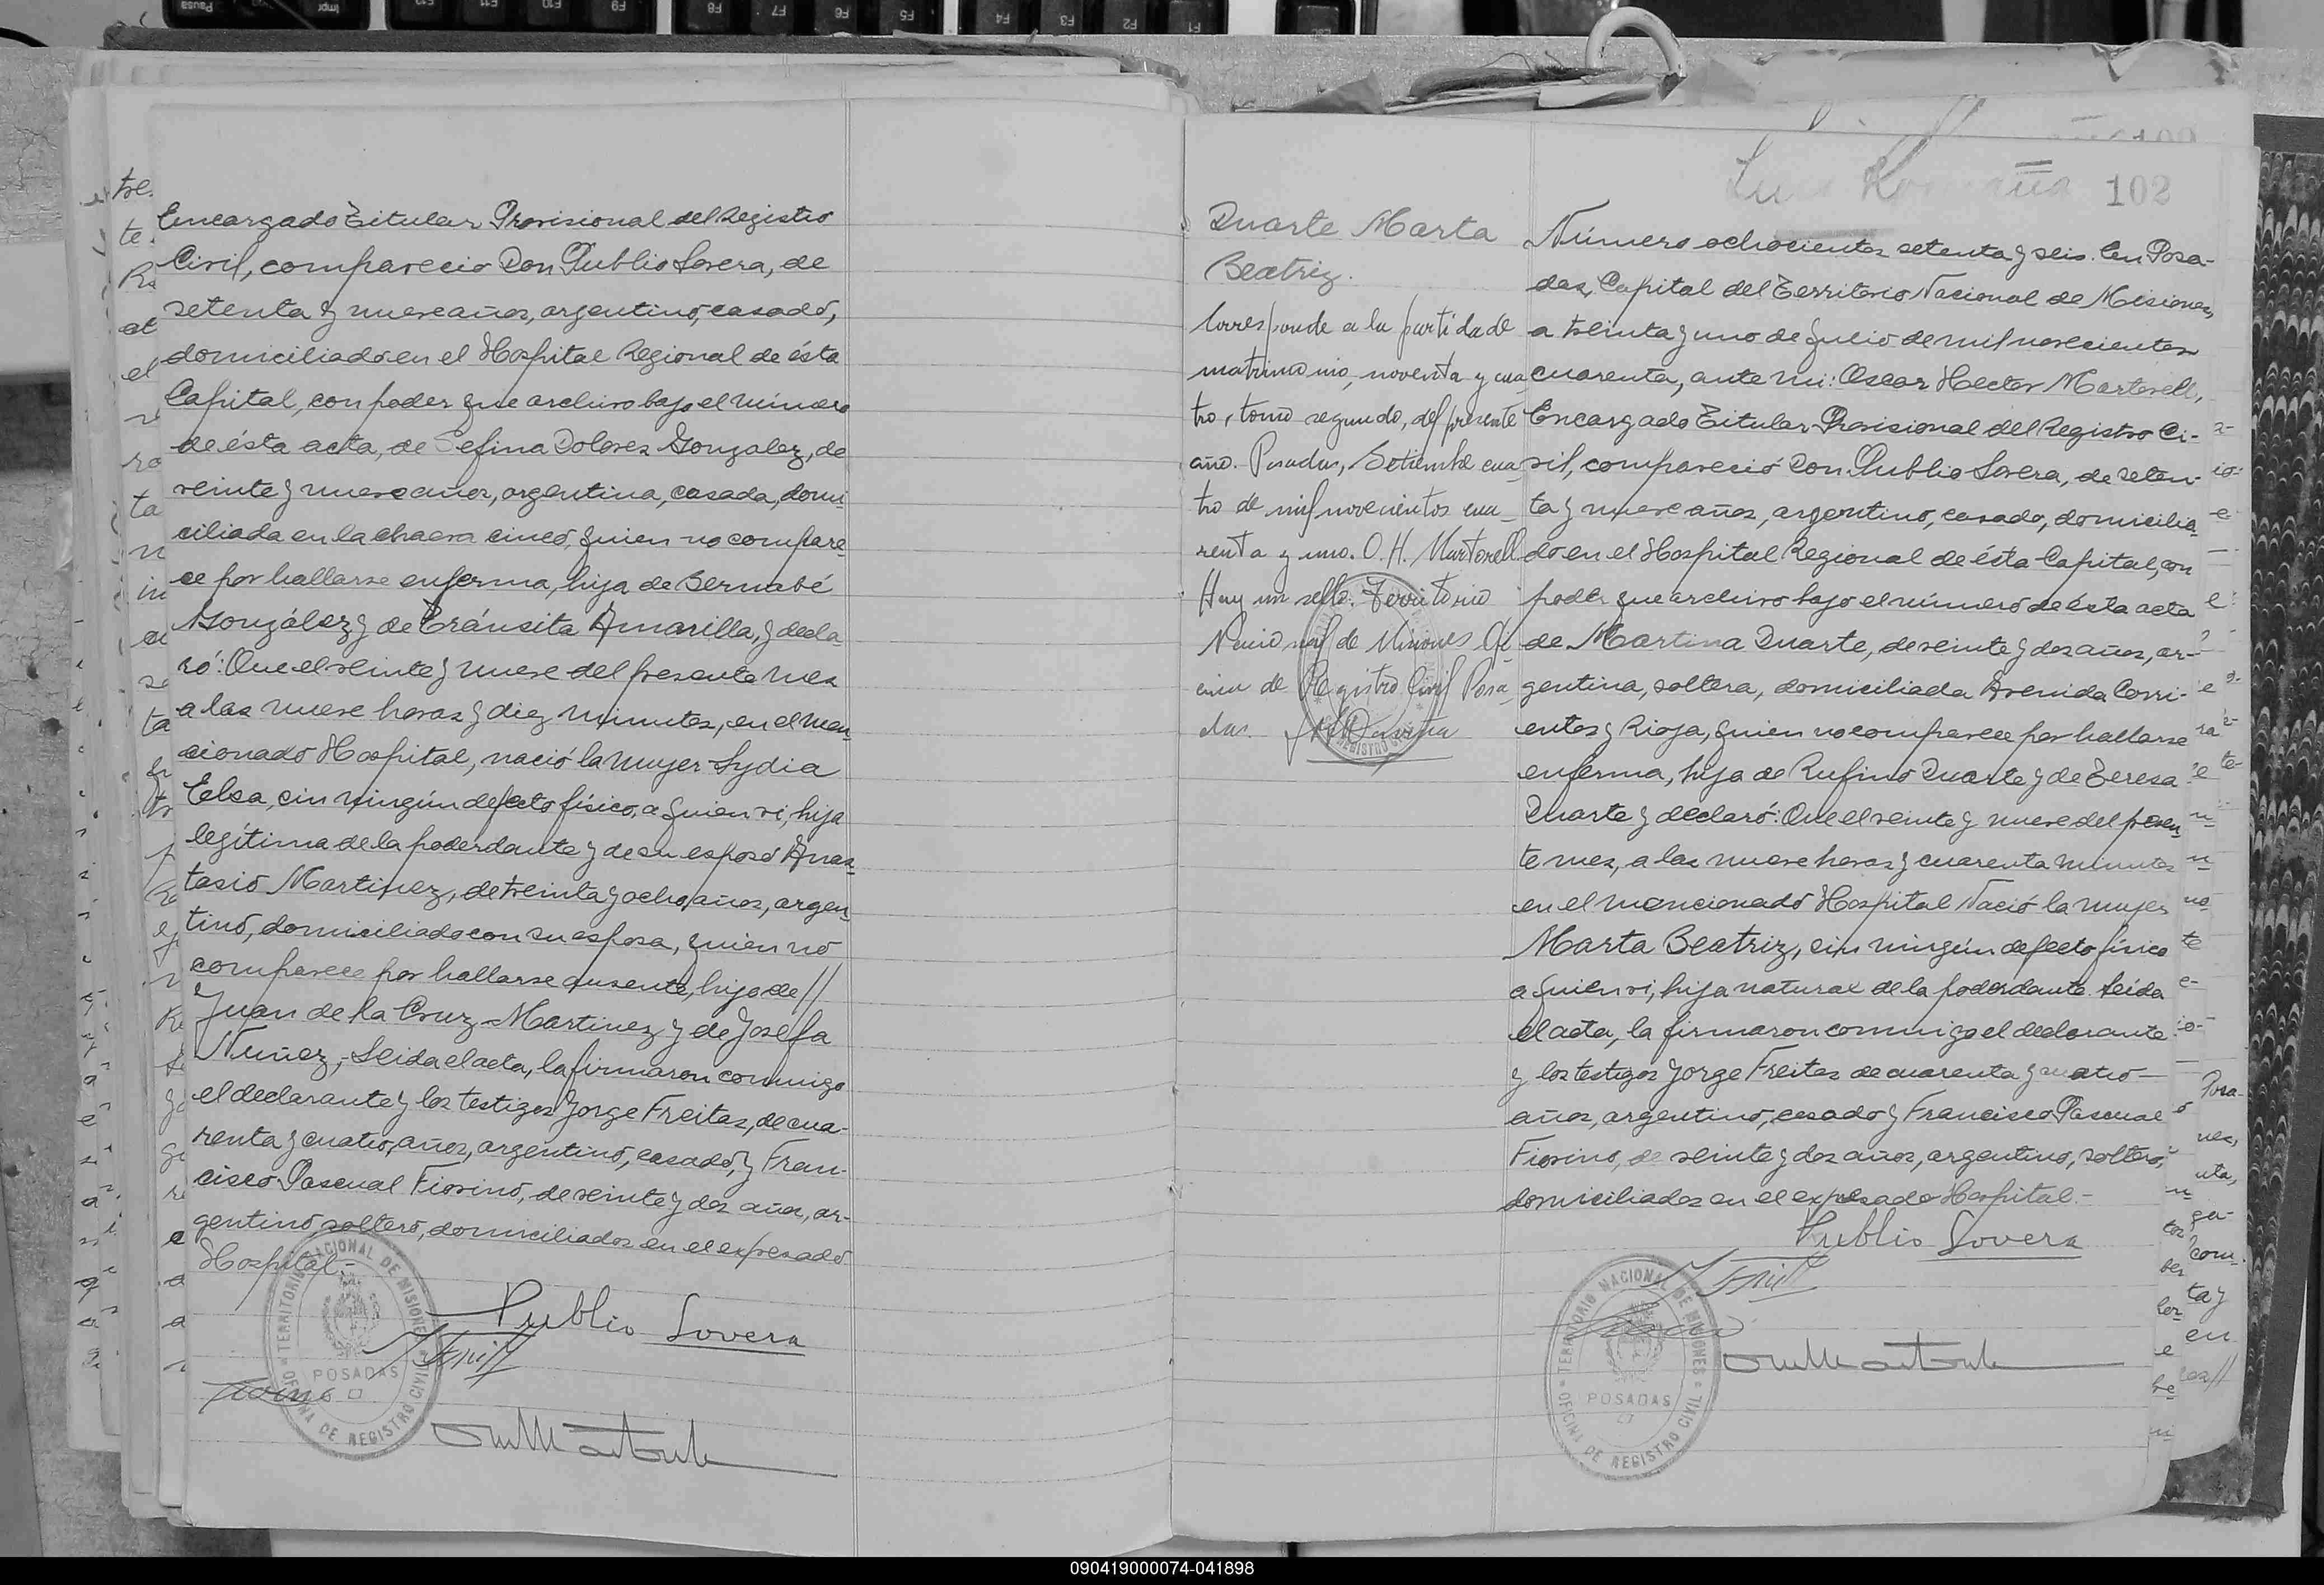 Encargado Titular Provisional del Registro
Civil, compareció Don Publio Lovera, de
setenta y nueve años, argentino, casado,
domiciliado en el Hospital Regional de ésta
Capital, con poder que archivo bajo el número
de ésta acta, de Sefina Dolores Gonzalez, de
veinte y nueve años, argentina, casada, domi-
ciliada en la chacra cinco, quien no compare-
ce por hallarse enferma, hija de Bernabé
González y de Tránsita Amarilla, y decla-
ró: Que el veinte y nueve del presente mes
a las nueve horas y diez minutos, en el men-
cionado Hospital, nació la mujer Lydia
Elsa, sin ningún defecto físico, a quien vi, hija
legítima de la poderdante y de su esposo Anas-
tasio Martinez, de treinta y ocho años, argen-
tino, domiciliado con su esposa, quien no
comparece por hallarse ausente, hijo de //
Juan de la Cruz Martinez y de Josefa
Nuñez,- Leida el acta, la firmaron conmigo
el declarante y los testigos Jorge Freitas, de cua-
renta y cuatro, años, argentino, casado, y Fran-
cisco Pascual Fiorino, de veinte y dos años, ar-
gentino soltero, domiciliados en el expresado
Hospital.-
Publio Lovera
TERRITORIO NACIONAL DE MISIONES
POSADAS
OFICINA DE REGISTRO CIVIL
102
Duarte Marta
Beatriz.
Corresponde a la partida de
matrimonio, noventa y cua
tro, tomo segundo, del presente
año. Posadas, Setiembre cua
tro de mil novecientos cua-
renta y uno. O. H. Martorell
Hay un sello: Territorio
Nacional de Misiones Ofi
cina de Registro Civil Posa
das.
Número ochocientos setenta y seis. En Posa-
das, Capital del Territorio Nacional de Misiones,
a treinta y uno de Julio de mil novecientos
cuarenta, ante mi: Oscar Hector Martorell,
Encargado Titular Provisional del Registro Ci-
vil, compareció Don Publio Lovera, de seten-
ta y nueve años, argentino, casado, domicilia
do en el Hospital Regional de ésta Capital, con
poder que archivo bajo el número de ésta acta
de Martina Duarte, de veinte y dos años, ar-
gentina, soltera, domiciliada Avenida Corri-
entes y Rioja, quien no comparece por hallarse
enferma, hija de Rufino Duarte y de Teresa
Duarte y declaró: Que el veinte y nueve del presen-
te mes, a las nueve horas y cuarenta minutos
en el mencionado Hospital Nació la mujer
Marta Beatriz, sin ningún defecto físico
a quien vi, hija natural de la poderdante. Leída
el acta, la firmaron conmigo el declarante
y los testigos Jorge Freitas de cuarenta y cuatro
años, argentino, casado y Francisco Pascual
Fiorino, de veinte y dos años, argentino, soltero,
domiciliados en el expresado Hospital.-
Publio Lovera
TERRITORIO NACIONAL DE MISIONES
POSADAS
OFICINA DE REGISTRO CIVIL
090419000074-041898